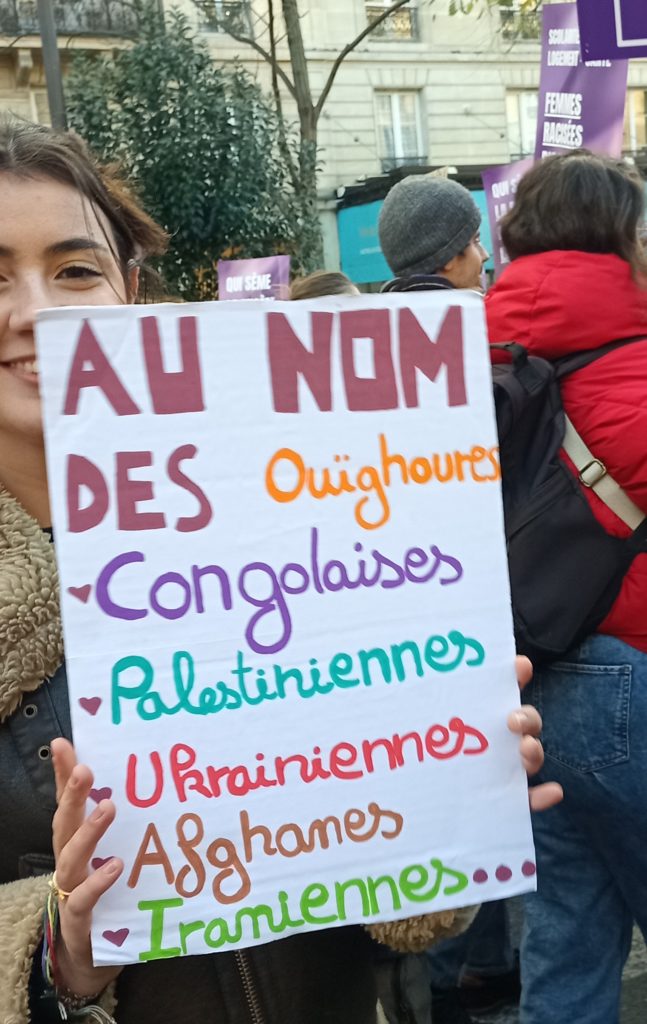 SCOLARITÉ
LOGEMENT SANTÉ
FEMMES
RACISÉES
QUI SÈME
AU NOM
DES Ouïghoures
Congolaises
Palestiniennes
Ukrainiennes
Afghanes
Iraniennes...